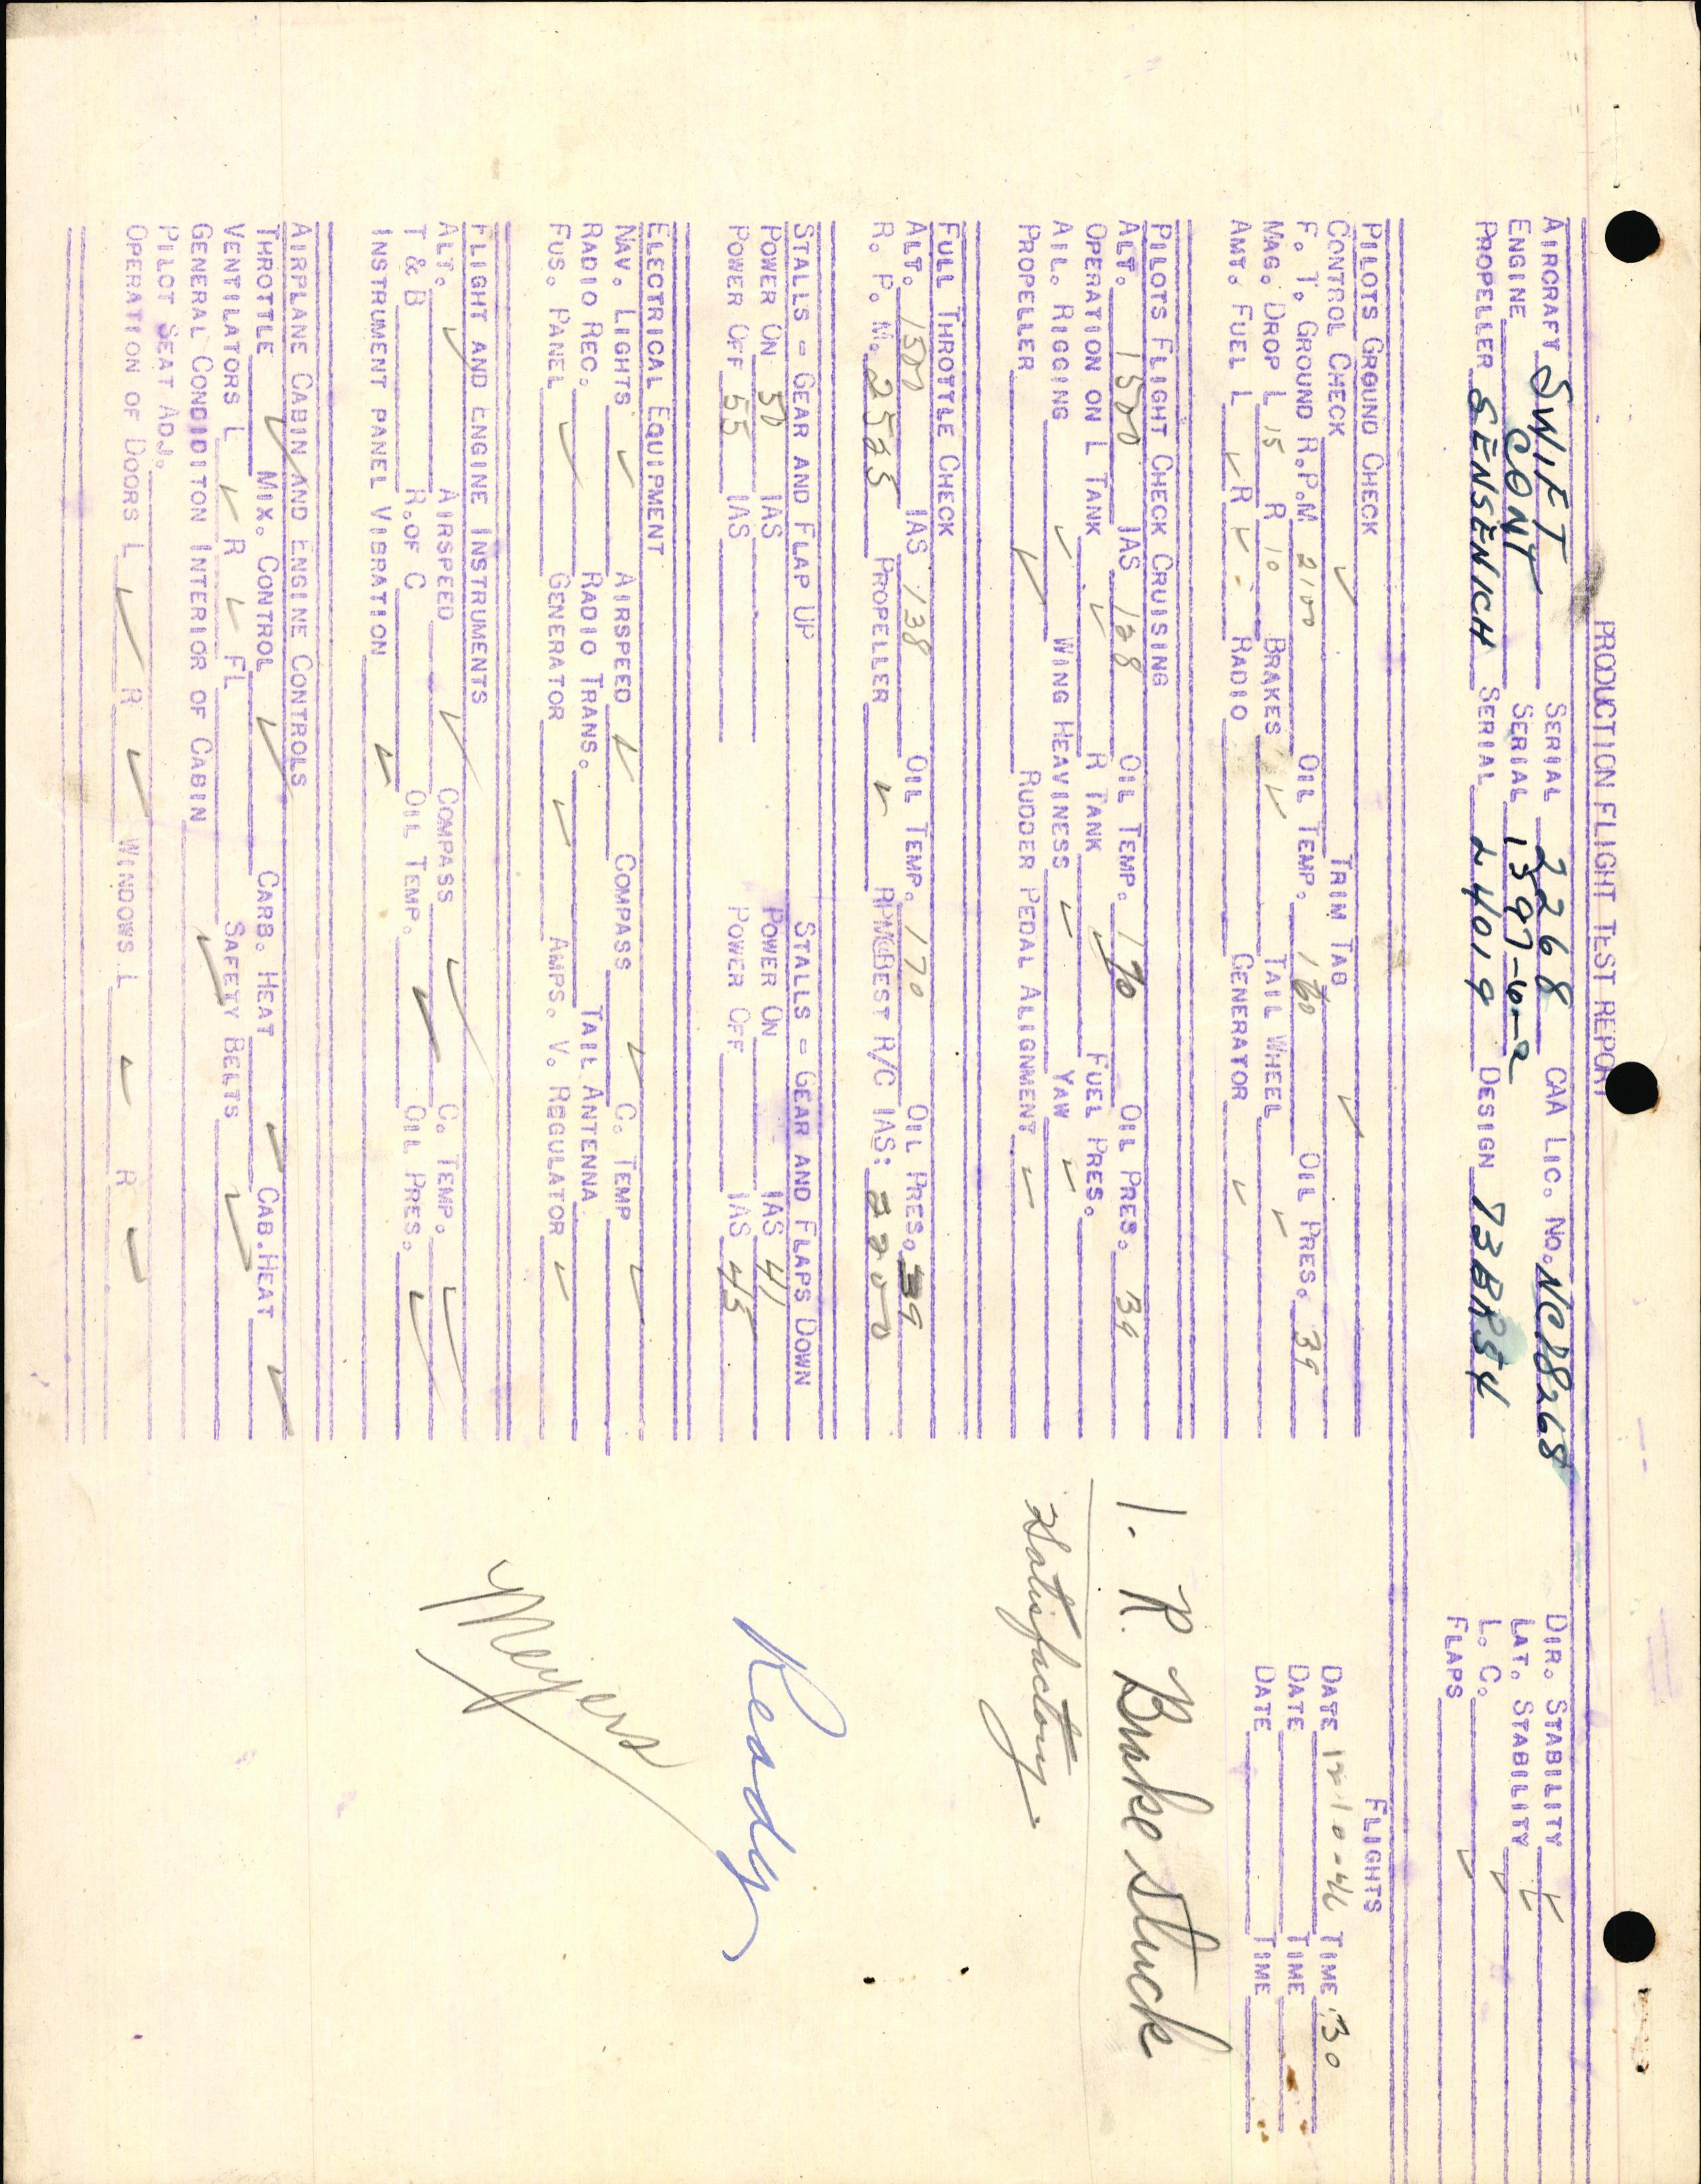 PRODUCTION FLIGHT TEST REPORT
AIRCRAFT SWIFT SERIAL 2268 CAA LIC. NO. NC78268 DIR. STABILITY ✓
ENGINE CONT SERIAL LAT. STABILITY ✓
PROPELLER SENSENICH SERIAL 24019 DESIGN L. C. ✓
FLAPS ✓
PILOTS GROUND CHECK FLIGHTS
CONTROL CHECK ✓ TRIM TAB ✓ DATE 12-10-46 TIME :30
F. T. GROUND R.P.M 2100 OIL TEMP. 160 OIL PRES. 39 DATE TIME
MAG. DROP L 15 R 10 BRAKES ✓ TAIL WHEEL ✓ DATE TIME
AMT. FUEL L ✓ R ✓ RADIO GENERATOR ✓
PILOTS FLIGHT CHECK CRUISING
ALT. 1500 IAS 128 OIL TEMP. 170 OIL PRES. 39 1. R Brake Stuck
OPERATION ON L TANK ✓ R TANK ✓ FUEL PRES.
AIL. RIGGING ✓ WING HEAVINESS ✓ YAW ✓ Satisfactory
PROPELLER ✓ RUDDER PEDAL ALIGNMENT ✓
FULL THROTTLE CHECK
ALT. 1500 IAS 138 OIL TEMP. 170 OIL PRES. 39
R. P. M. 2525 PROPELLER ✓ RPM@BEST R/C IAS: 2200
STALLS = GEAR AND FLAP UP STALLS = GEAR AND FLAPS DOWN
POWER ON 50 IAS POWER ON IAS 41 Ready
POWER OFF 55 IAS POWER OFF IAS 45
ELECTRICAL EQUIPMENT
NAV. LIGHTS ✓ AIRSPEED ✓ COMPASS ✓ C. TEMP ✓
RADIO REC. RADIO TRANS. TAIL ANTENNA
FUS. PANEL ✓ GENERATOR ✓ AMPS. V. REGULATOR ✓
Meyers
FLIGHT AND ENGINE INSTRUMENTS
ALT. ✓ AIRSPEED ✓ COMPASS ✓ C. TEMP. ✓
T & B R.OF C OIL TEMP. ✓ OIL PRES. ✓
INSTRUMENT PANEL VIBRATION ✓
AIRPLANE CABIN AND ENGINE CONTROLS
THROTTLE ✓ MIX. CONTROL ✓ CARB. HEAT ✓ CAB.HEAT ✓
VENTILATORS L ✓ R ✓ FL SAFETY BELTS ✓
GENERAL CONDIDITON INTERIOR OF CABIN ✓
PILOT SEAT ADJ.
OPERATION OF DOORS L ✓ R ✓ WINDOWS L ✓ R ✓